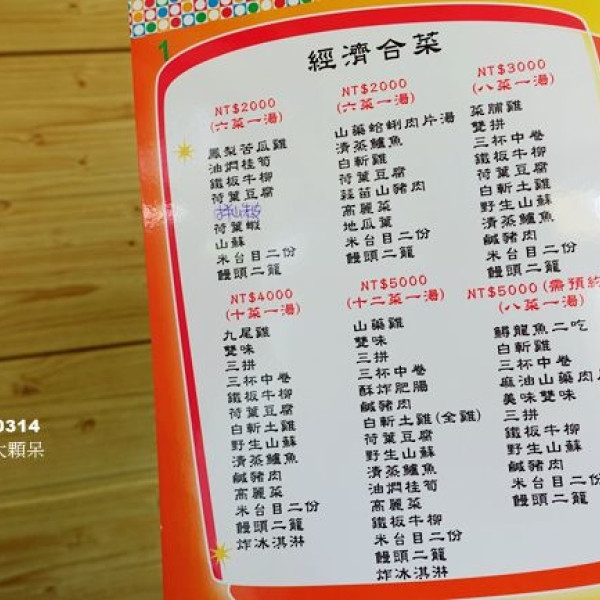 1
經濟合菜
NT$2000
(六菜一湯)
鳳梨苦瓜雞
油燜桂筍
鐵板牛柳
荷葉豆腐
荷葉蝦
山蘇
米台目二份
饅頭二籠
NT$2000
(六菜一湯)
山藥蛤蜊肉片湯
清蒸鱸魚
白斬雞
荷葉豆腐
蒜苗山豬肉
高麗菜
地瓜葉
米台目二份
饅頭二籠
NT$3000
(八菜一湯)
菜脯雞
雙拼
三杯中卷
鐵板牛柳
荷葉豆腐
白斬土雞
野生山蘇
清蒸鱸魚
鹹豬肉
米台目二份
饅頭二籠
NT$4000
(十菜一湯)
九尾雞
雙味
三拼
三杯中卷
鐵板牛柳
荷葉豆腐
白斬土雞
野生山蘇
清蒸鱸魚
鹹豬肉
高麗菜
米台目二份
饅頭二籠
炸冰淇淋
NT$5000
(十二菜一湯)
山藥雞
雙味
三拼
三杯中卷
酥炸肥腸
鹹豬肉
白斬土雞(全雞)
荷葉豆腐
野生山蘇
清蒸鱸魚
油燜桂筍
高麗菜
鐵板牛柳
米台目二份
饅頭二籠
炸冰淇淋
NT$5000 (需預約
(八菜一湯)
鱘龍魚二吃
白斬雞
三杯中卷
麻油山藥肉片
美味雙味
三拼
鐵板牛柳
野生山蘇
鹹豬肉
米台目二份
饅頭二籠
0314
大顆呆